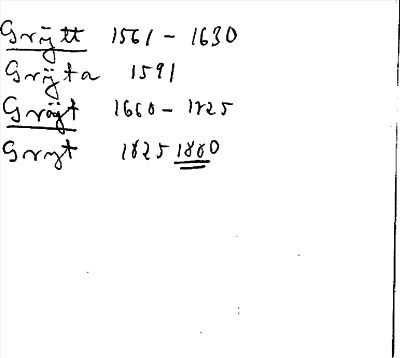 Grÿtt 1561 - 1630
Grÿta 1591
Gröÿt 1660 - 1825
Gryt 1825 1880